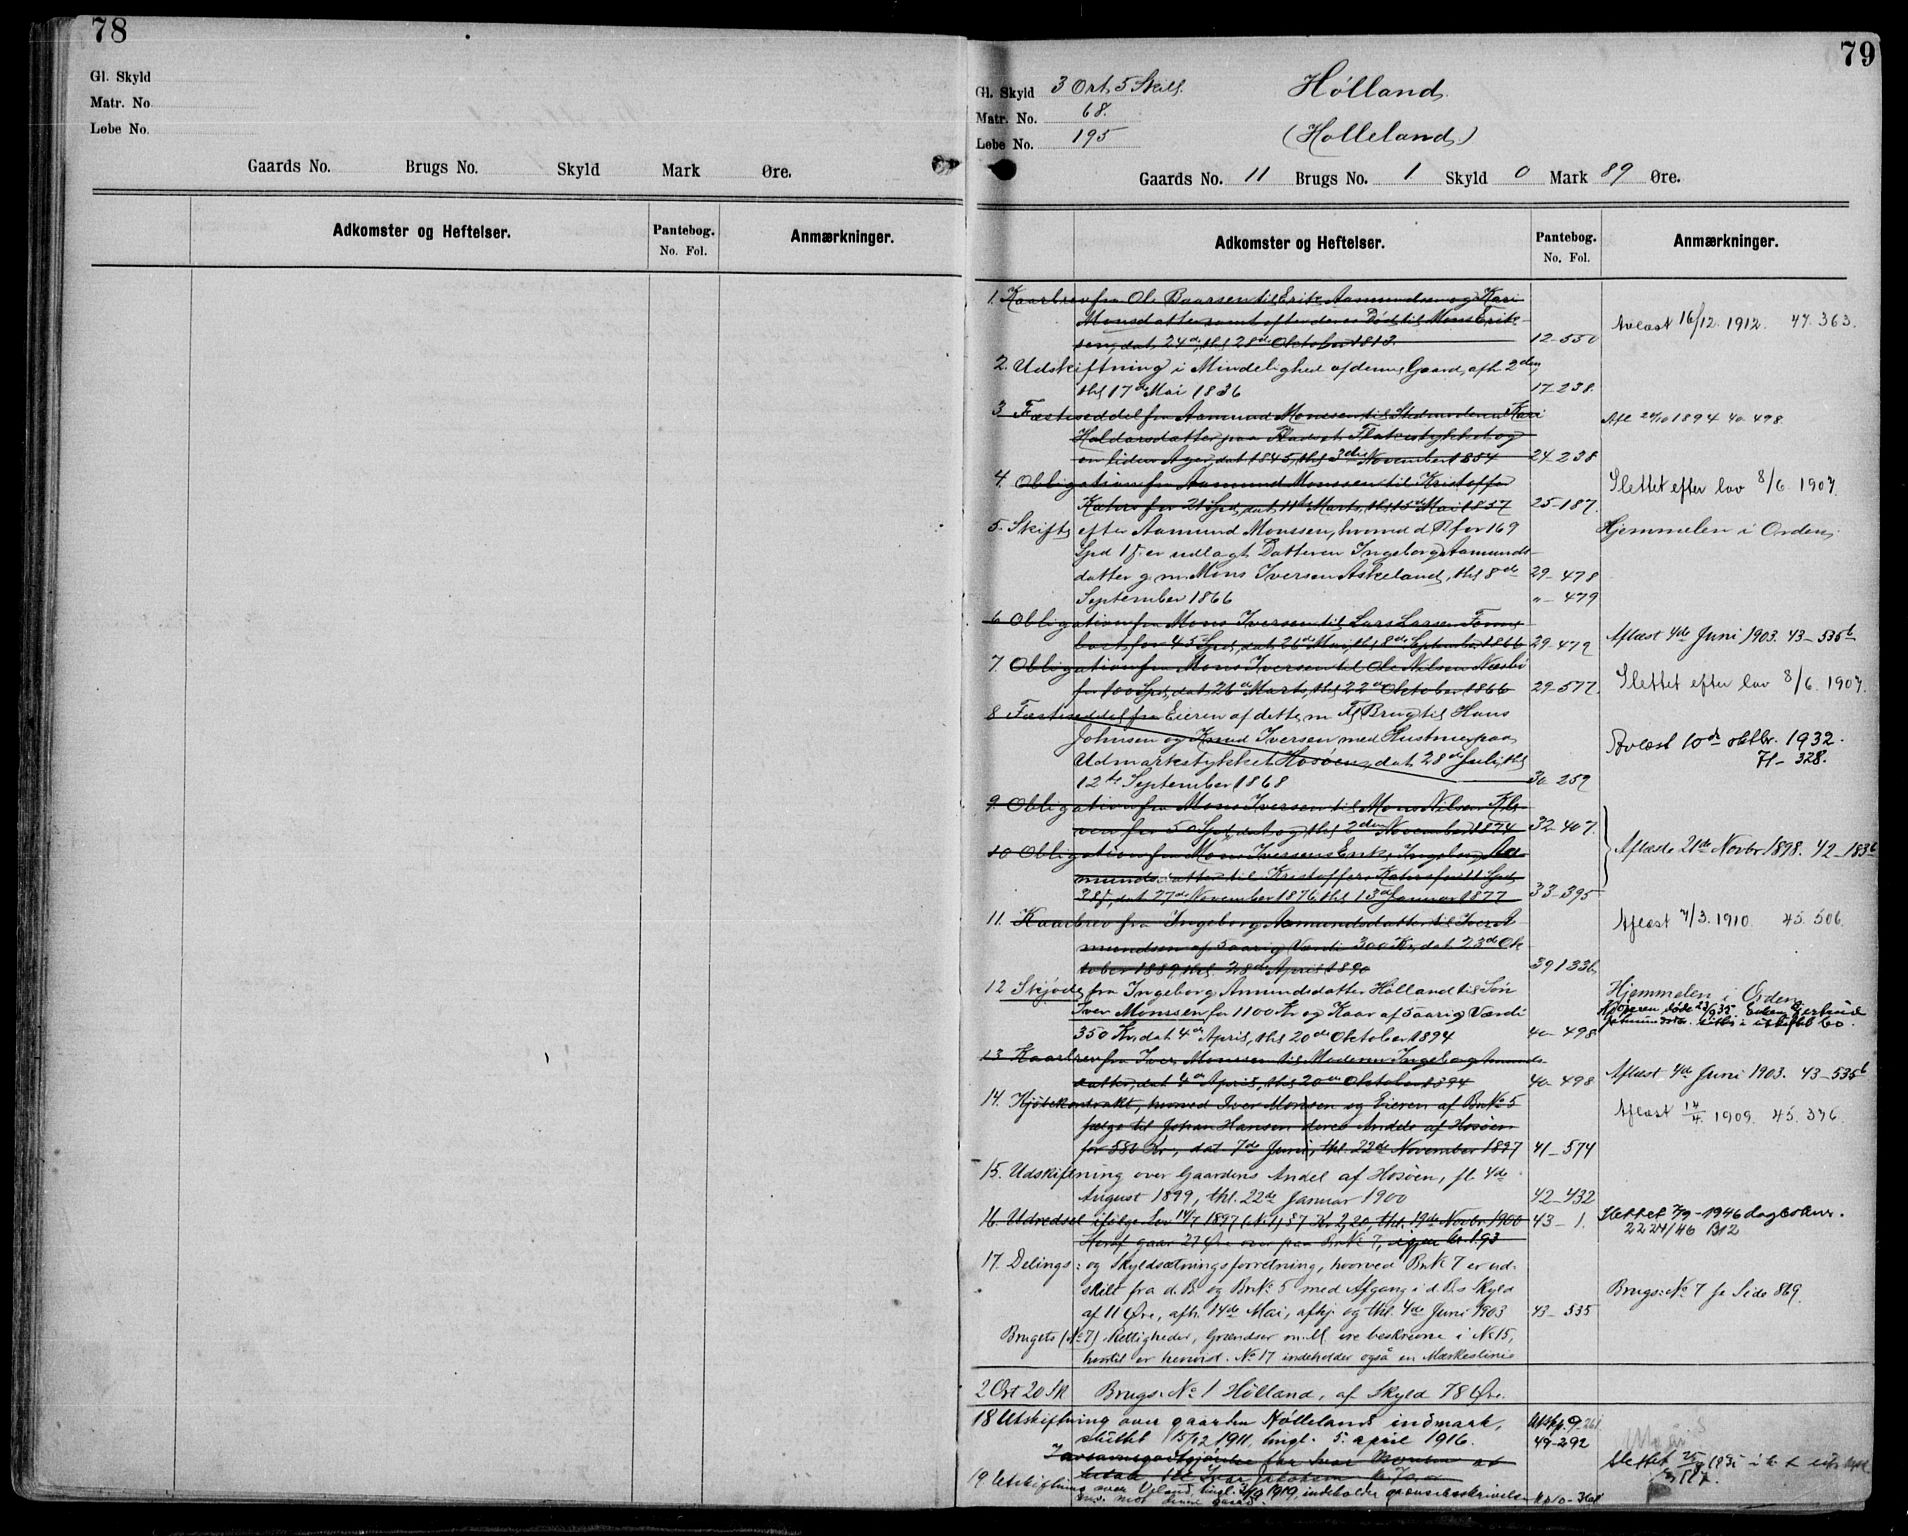 78
Gl. Skyld
Matr. No.
Løbe No.
Gaards No. Brugs No. Skyld Mark Øre.
Adkomster og Heftelser. Pantebog. No. Fol. Anmærkninger.
79
Gl. Skyld 3 Ort 5 Skill. Hølland.
Matr. No. 68. (Holleland)
Løbe No. 195
Gaards No. 11 Brugs No. 1 Skyld 0 Mark 89 Øre.
Adkomster og Heftelser. Pantebog. No. Fol. Anmærkninger.
1. Kaarbrev fra Ole Baarsen til Erik Aamundsen og Kari
Monsdatter samt efter deres Død til Mons Erik-
sen, dat. 24de, thl. 28de Oktober 1813. 12-550 Avlæst 16/12. 1912. 47. 363.
2. Udskiftning i Mindelighed af denne Gaard, afh. 2den,
thl. 17de Mai 1836 17-238.
3 Fæsteseddel fra Aamund Monssen til Stedmoderen Kari
Haldorsdatter paa Pladset Flatestykket og
en liden Ager, dat. 1845, thl. 3die November 1854 24-238 Afl. 20/10 1894 40. 498
4. Obligation fra Aamund Monssen til Kristoffer
Kahrs for 21 Spd, dat. 11te Marts, thl. 15de Mai 1857 25-187. Slettet efter lov 8/6. 1907.
5. Skifte efter Aamund Monssen, hvorved d. B. for 169 Hjemmelen i Orden.
Spd 1 ƒ. er udlagt Datteren Ingeborg Aamunds-
datter g. m. Mons Iversen Askeland, thl. 8de 29-478
September 1866 "- 479
6 Obligation fra Mons Iversen til Lars Larsen
for 45 Spd, dat. 26de Mai, thl. 8de September 1866 29-479 Aflæst 4de Juni 1903. 43-535b
7. Obligation fra Mons Iversen til Ole Nilsen Næsbø
for 100 Spd, dat. 26de Marts, thl. 22de Oktober 1866 29-577. Slettet efter lov 8/6. 1907.
8 Fæsteseddel fra Eieren af dette m. fl. Brug til Hans
Johnsen og Knud Iversen med Hustruer paa
Udmarkstykket Hosøen, dat. 28de Juli, thl.
12te September 1868 30-259 Avlæst 10de oktbr. 1932. 71-328.
9. Obligation fra Mons Iversen til Mons Nilsen
for 50 Spd, dat. og thl. 2den November 1874 32-407.
10 Obligation fra Mons Iversens Enke, Ingeborg Aa-
mundsdatter til Kristoffer Kahrs for 11 Spd
38 ƒ, dat. 27de November 1876, thl. 13de Januar 1877 33-395 Aflæste 21de Novbr 1898. 42-183b
11. Kaarbrev fra Ingeborg Aamundsdatter til Iver A-
mundsen af 5aarig Værdi 300 Kr, dat. 23de Ok-
tober 1889, thl. 28de April 1890 39 336 Aflæst 7/3. 1910. 45. 506.
12 Skjøde fra Ingeborg Amundsdatter Hølland til Søn Hjemmelen i Orden
Iver Monssen for 1100 Kr og Kaar af 5aarig Værdi
350 Kr, dat. 4de April, thl. 20de Oktober 1894 40-498
13. Kaarbrev fra Iver Monssen til Moderen Ingeborg Amunds-
datter, dat. 4de April, thl. 20de Oktober 1894 40-498 Aflæst 4de Juni 1903. 43-535b
14. Kjøbekontrakt, hvorved Iver Monsen og Eieren af Br.No 5
sælge til Johan Hansen deres Andele af Hosøen
for 580 Kr., dat. 7de Juni, thl. 22de November 1897 41-574 Aflæst 14/4. 1909. 45. 376.
15. Udskiftning over Gaardens Andel af Hosøen, sl. 4de
August 1899, thl. 22de Januar 1900 42-432
16. Udredsel ifølge Lov 14/7 1897 (No 1) 87 Kr 2,20, thl. 19de Novbr 1900 43-1. Slettet 7/9-1946 dagboknr.
Heraf gaar 27 Øre over paa Br.No 7, igjen kr. 1.93 2224/46 B12
17. Delings- og Skyldsætningsforretning, hvorved Br.No 7 er ud-
skilt fra d. B. og Br.No 5 med Afgang i d. B.s Skyld
af 11 Øre, afh. 14de Mai, afhj. og thl. 4de Juni 1903 43-535 Brugs-No 7 se Side 869.
Brugets (No 7) Rettigheder, Grændser m.M. ere beskrevne i No 15,
hvortil er henvist. No 17 indeholder også en Mærkeslinie
2 Ort 20 Sk Brugs-No 1 Hølland, af Skyld 78 Øre.
18 Utskiftning over gaarden Hølleland indmark, Utskp. 9-261
sluttet 15/12 1911, tingl. 5. april 1916. 49-292
19 Utskiftning over tingl. 1919, indeholder grænsebeskrivelse
mot denne gaard.